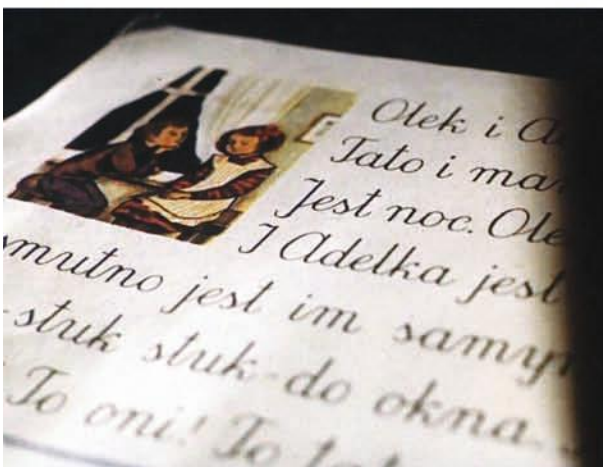 Olek i
Tato i
Jest noc.
I Adelka jest
smutno jest im
stuk stuk-do okna
To oni! To